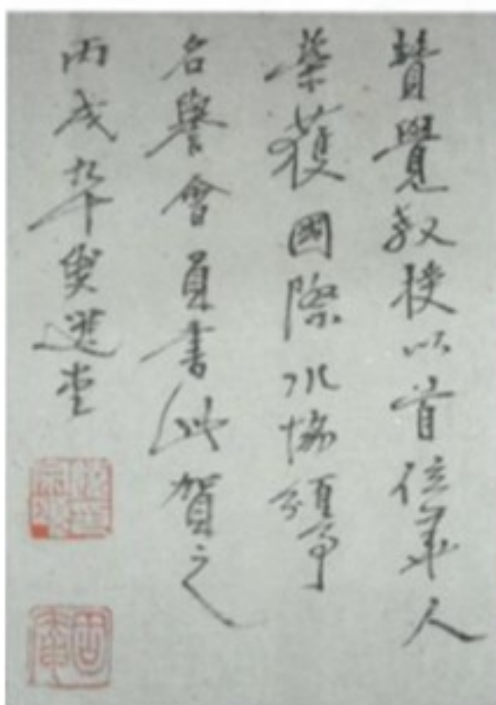 贊覺教授以首位華人
榮獲國際水協頒予
名譽會員書此賀之
丙戌九十叟選堂